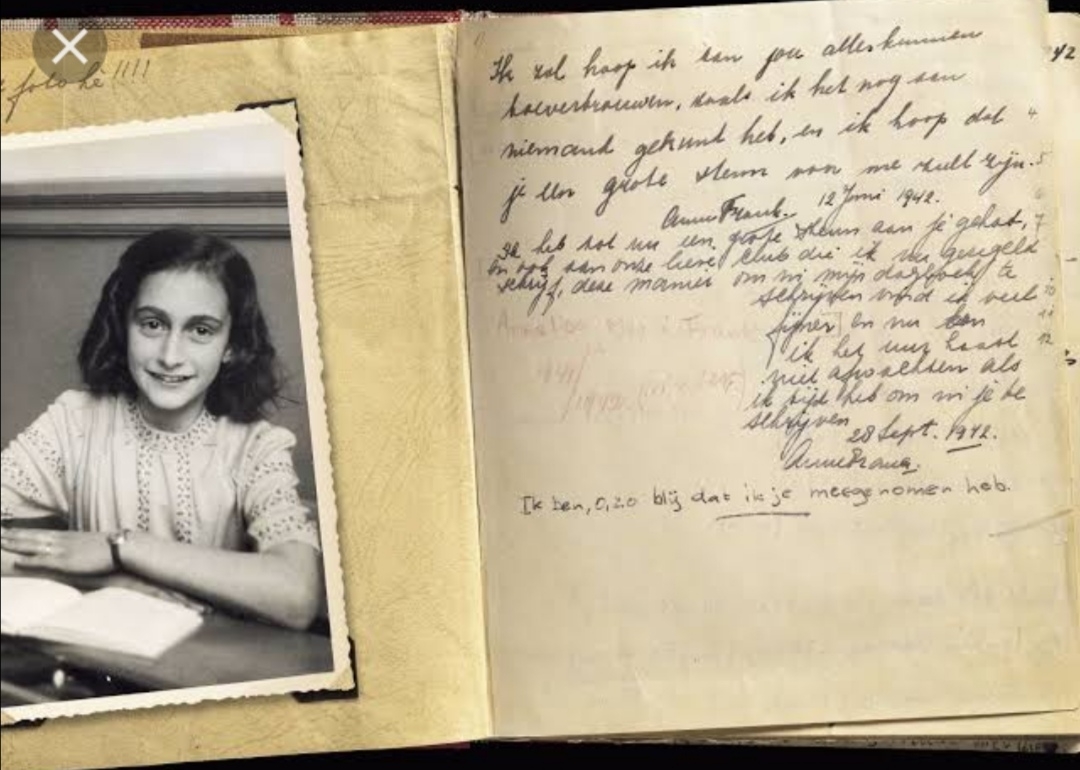 foto hè!!!!
Ik zal hoop ik aan jou alles kunnen
toevertrouwen, zoals ik het nog aan
niemand gekunt heb, en ik hoop dat
je een grote steun voor me zult zijn.
Anne Frank. 12 Juni 1942.
Ik heb tot nu een grote steun aan je gehad,
en ook aan onze lieve club die ik nu geregeld
schrijf, deze manier om in mijn dagboek te
schrijven vind ik veel
fijner en nu kan
ik het uur haast
niet afwachten als
ik tijd heb om in je te
schrijven
28 Sept. 1942.
Anne Frank.
Ik ben, o, zo blij dat ik je meegenomen heb.
42
4
5
6
7
10
11
12